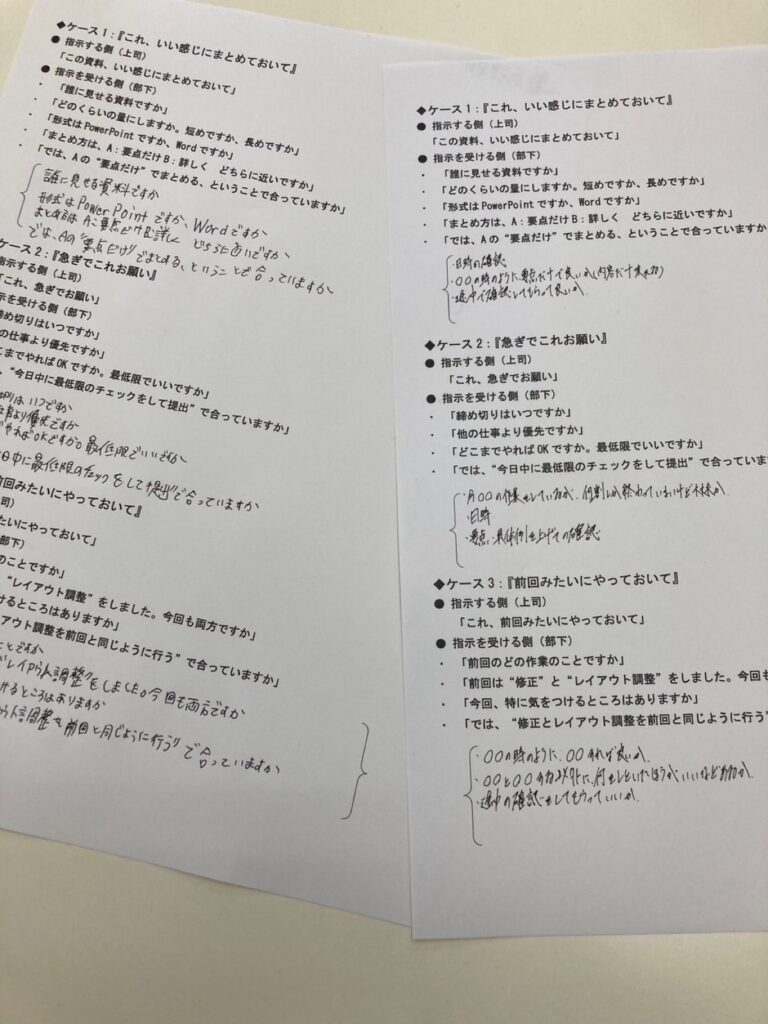 ◆ケース1:『これ、いい感じにまとめておいて』
● 指示する側（上司）
「この資料、いい感じにまとめておいて」
● 指示を受ける側（部下）
・ 「誰に見せる資料ですか」
・ 「どのくらいの量にしますか。短めですか、長めですか」
・ 「形式はPowerPointですか、Wordですか」
・ 「まとめ方は、A：要点だけ B：詳しく どちらに近いですか」
・ 「では、Aの“要点だけ”でまとめる、ということで合っていますか」
誰に見せる資料ですか
形式はPowerPointですか、Wordですか
まとめ方は A:要点だけ B:詳しく どちらに近いですか
では、Aの“要点だけ”でまとめる、ということで合っていますか
ケース2:『急ぎでこれお願い』
指示する側（上司）
「これ、急ぎでお願い」
示を受ける側（部下）
締め切りはいつですか」
の仕事より優先ですか」
こまでやればOKですか。最低限でいいですか」
、“今日中に最低限のチェックをして提出”で合っていますか」
はいつですか
より優先ですか
やればOKですか。最低限でいいですか
日中に最低限のチェックをして提出”で合っていますか
前回みたいにやっておいて』
司）
たいにやっておいて」
部下）
のことですか」
“レイアウト調整”をしました。今回も両方ですか」
けるところはありますか」
アウト調整を前回と同じように行う”で合っていますか」
ことですか
“レイアウト調整”をしました。今回も両方ですか
けるところはありますか
ウト調整を前回と同じように行う”で合っていますか
◆ケース1:『これ、いい感じにまとめておいて』
● 指示する側（上司）
「この資料、いい感じにまとめておいて」
● 指示を受ける側（部下）
・ 「誰に見せる資料ですか」
・ 「どのくらいの量にしますか。短めですか、長めですか」
・ 「形式はPowerPointですか、Wordですか」
・ 「まとめ方は、A：要点だけ B：詳しく どちらに近いですか」
・ 「では、Aの“要点だけ”でまとめる、ということで合っていますか
・日時の確認
・〇〇の時のように要点だけで良いか(内容だけ
・途中で確認してもらって良いか
◆ケース2:『急ぎでこれお願い』
● 指示する側（上司）
「これ、急ぎでお願い」
● 指示を受ける側（部下）
・ 「締め切りはいつですか」
・ 「他の仕事より優先ですか」
・ 「どこまでやればOKですか。最低限でいいですか」
・ 「では、“今日中に最低限のチェックをして提出”で合っていま
・今〇〇の作業をしているが、何割しか終わっていないけど
・日時
・要点、具体例を上げての確認
◆ケース3:『前回みたいにやっておいて』
● 指示する側（上司）
「これ、前回みたいにやっておいて」
● 指示を受ける側（部下）
・ 「前回のどの作業のことですか」
・ 「前回は“修正”と“レイアウト調整”をしました。今回も
・ 「今回、特に気をつけるところはありますか」
・ 「では、“修正とレイアウト調整を前回と同じように行う”
・〇〇の時のように、〇〇すれば良いか
・〇〇と〇〇の 以外に、何をしといたほうがいいなどあるか
・途中の確認をしてもらっていいか